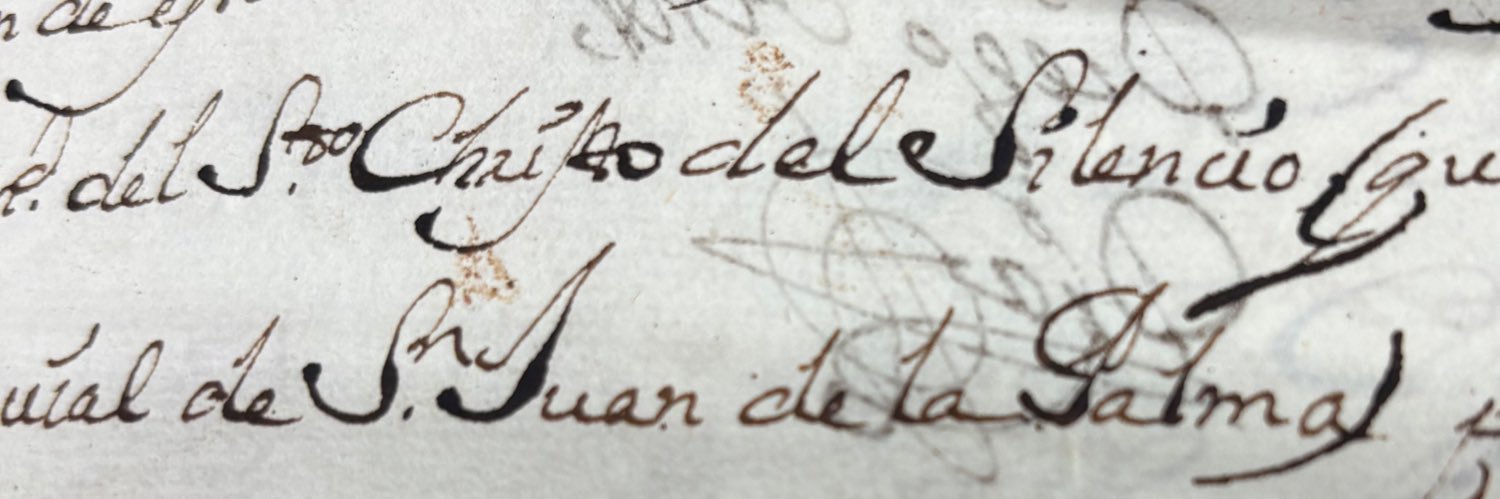 n de
d. del S.to Christo del Silencio (qu
uial de S.n Juan de la Palma)